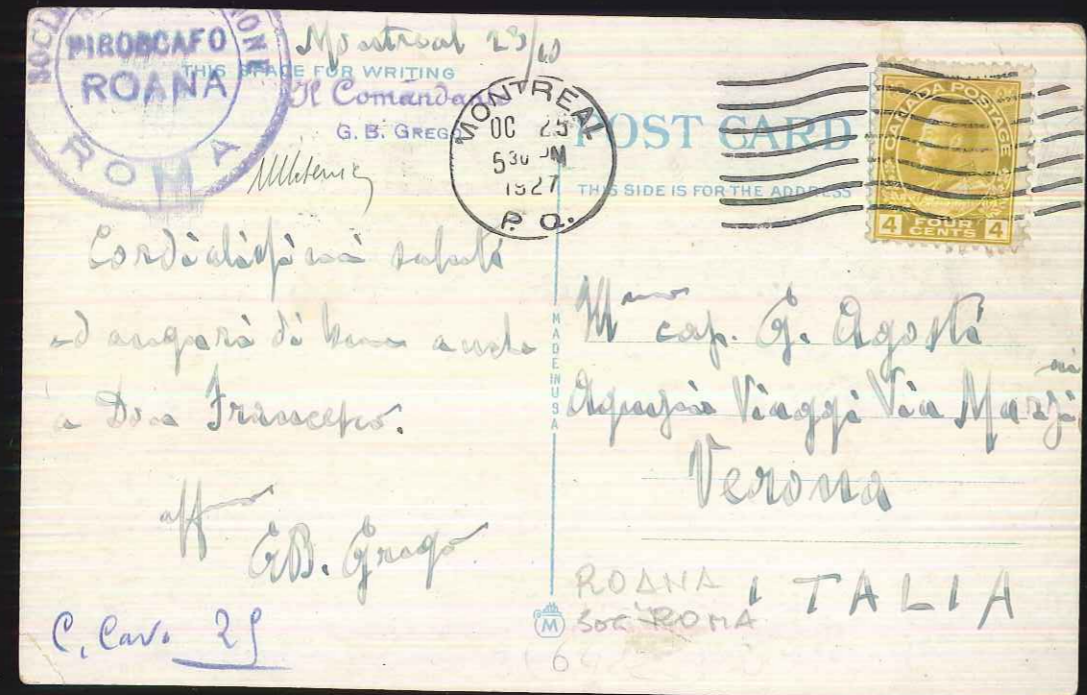 PIROSCAFO
ROANA
ROMA
Montreal 23/10
THIS SPACE FOR WRITING
Il Comandante
G. B. GREGO
MONTREAL
OC 25
530 PM
1927
P. Q.
POST CARD
THIS SIDE IS FOR THE ADDRESS
CANADA POSTAGE
4 FOUR CENTS 4
Cordialissimi saluti
ed auguri di bene anche
a Don Francesco.
aff
G.B. Grego
C. Cavo 25
MADE IN USA
cap. G. Agosti
Agenzia Viaggi Via
Verona
ITALIA
ROANA
Soc. ROMA
M